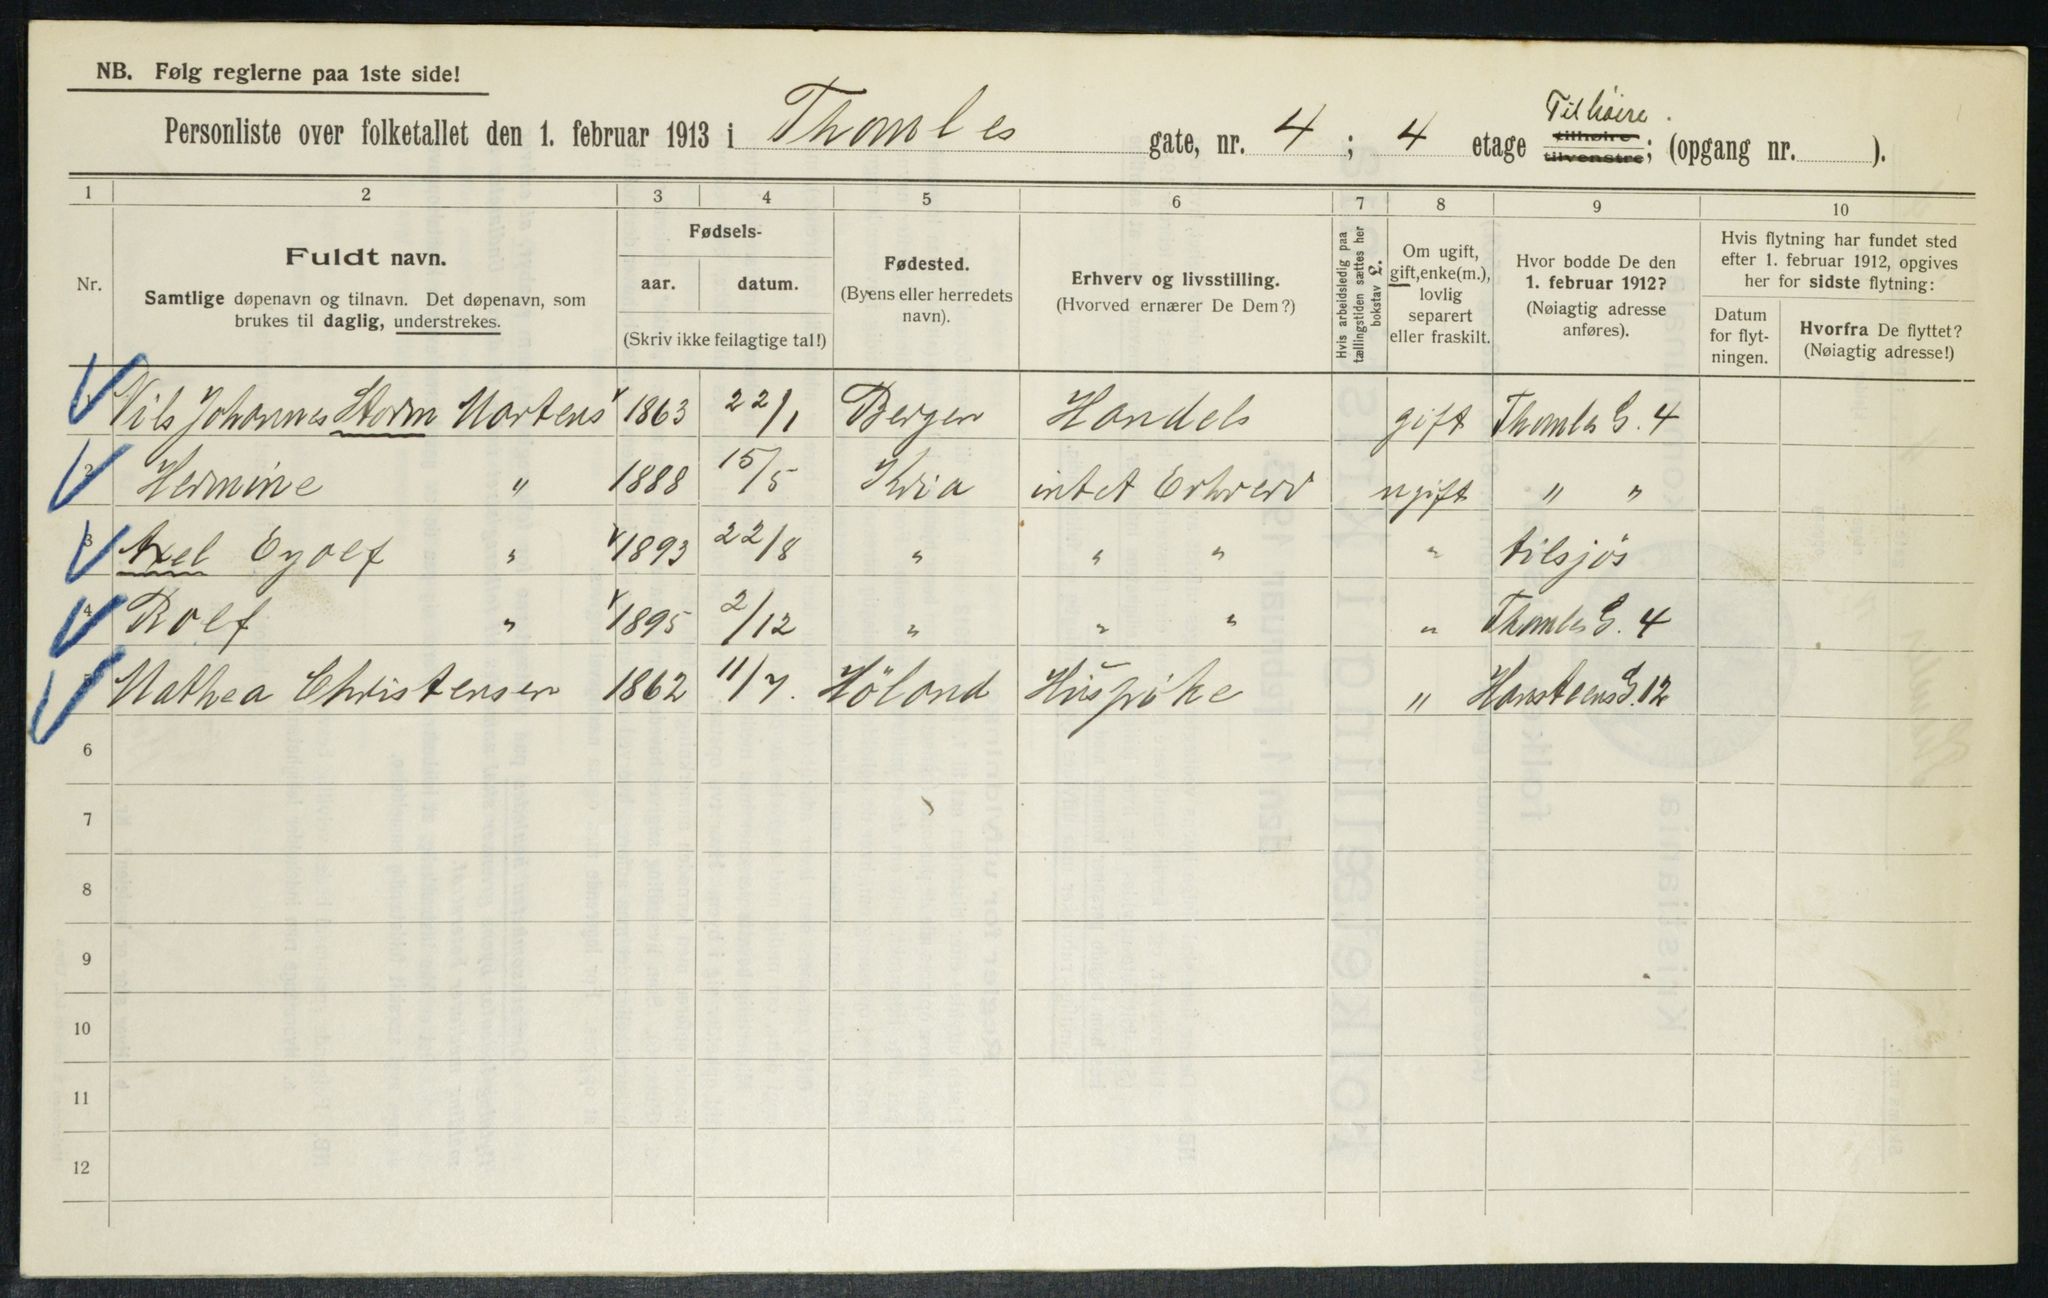 NB. Følg reglerne paa 1ste side!
Til høire.
Personliste over folketallet den 1. februar 1913 i Thomles gate, nr. 4 ; 4 etage tilhøire tilvenstre; (opgang nr. ).
1 2 3 4 5 6 7 8 9 10
Nr.
Fuldt navn.
Samtlige døpenavn og tilnavn. Det døpenavn, som
brukes til daglig, understrekes.
Fødsels-
aar. datum.
(Skriv ikke feilagtige tal!)
Fødested.
(Byens eller herredets
navn).
Erhverv og livsstilling.
(Hvorved ernærer De Dem?)
Hvis arbeidsledig paa
tællingstiden sættes her
bokstav L.
Om ugift,
gift, enke(m.),
lovlig
separert
eller fraskilt.
Hvor bodde De den
1. februar 1912?
(Nøiagtig adresse
anføres).
Hvis flytning har fundet sted
efter 1. februar 1912, opgives
her for sidste flytning:
Datum
for flyt-
ningen.
Hvorfra De flyttet?
(Nøiagtig adresse!)
1 Nils Johannes Storm Mortens 1863 22/1 Bergen Handels gift Thomles G. 4
2 Hermine " 1888 15/5 Kria intet Erhverv ugift " "
3 Axel Eyolf " 1893 22/8 " " " " tilsjös
4 Rolf " 1895 2/12 " " " " Thomles G. 4
5 Mathea Christensen 1862 11/7. Höland " Hansteens G. 12
6
7
8
9
10
11
12